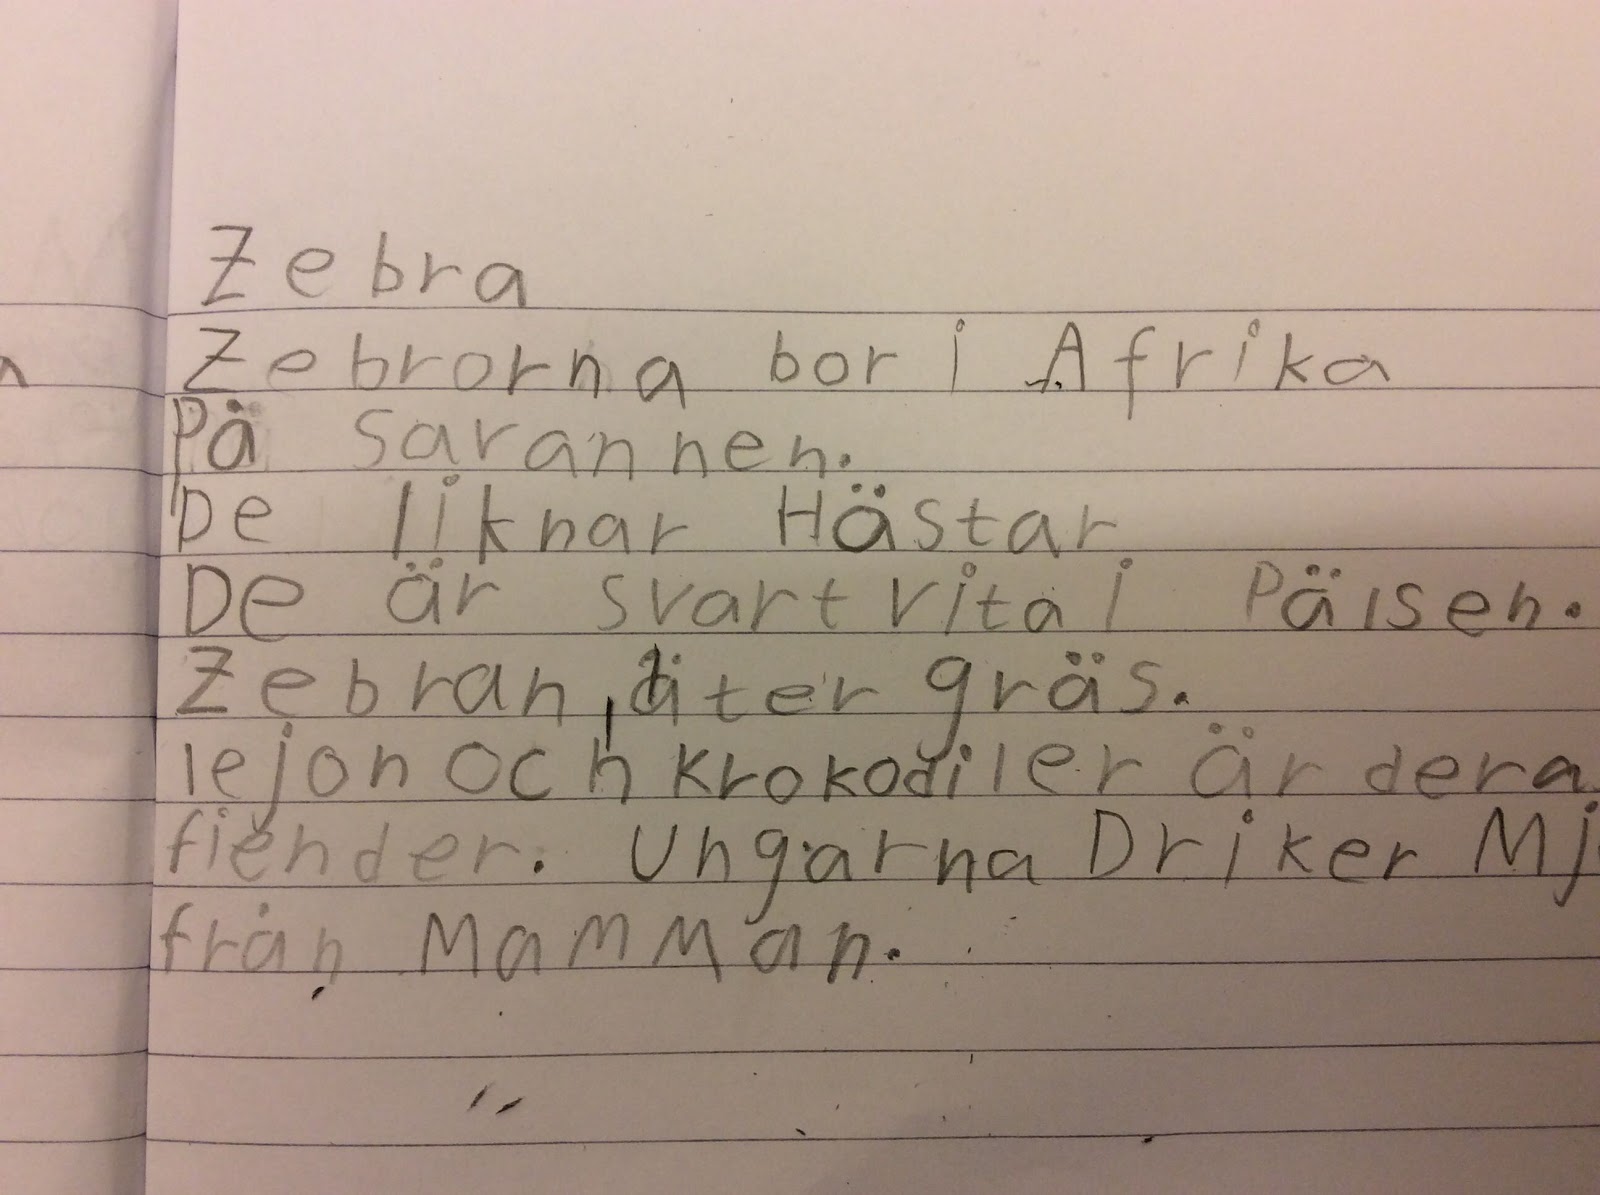 Zebra
Zebrorna bor i Afrika
På savannen.
De liknar Hästar
De är svartvita i Pälsen.
Zebran äter gräs.
lejon och krokodiler är dera
fiender. Ungarna Driker Mj
från Mamman.